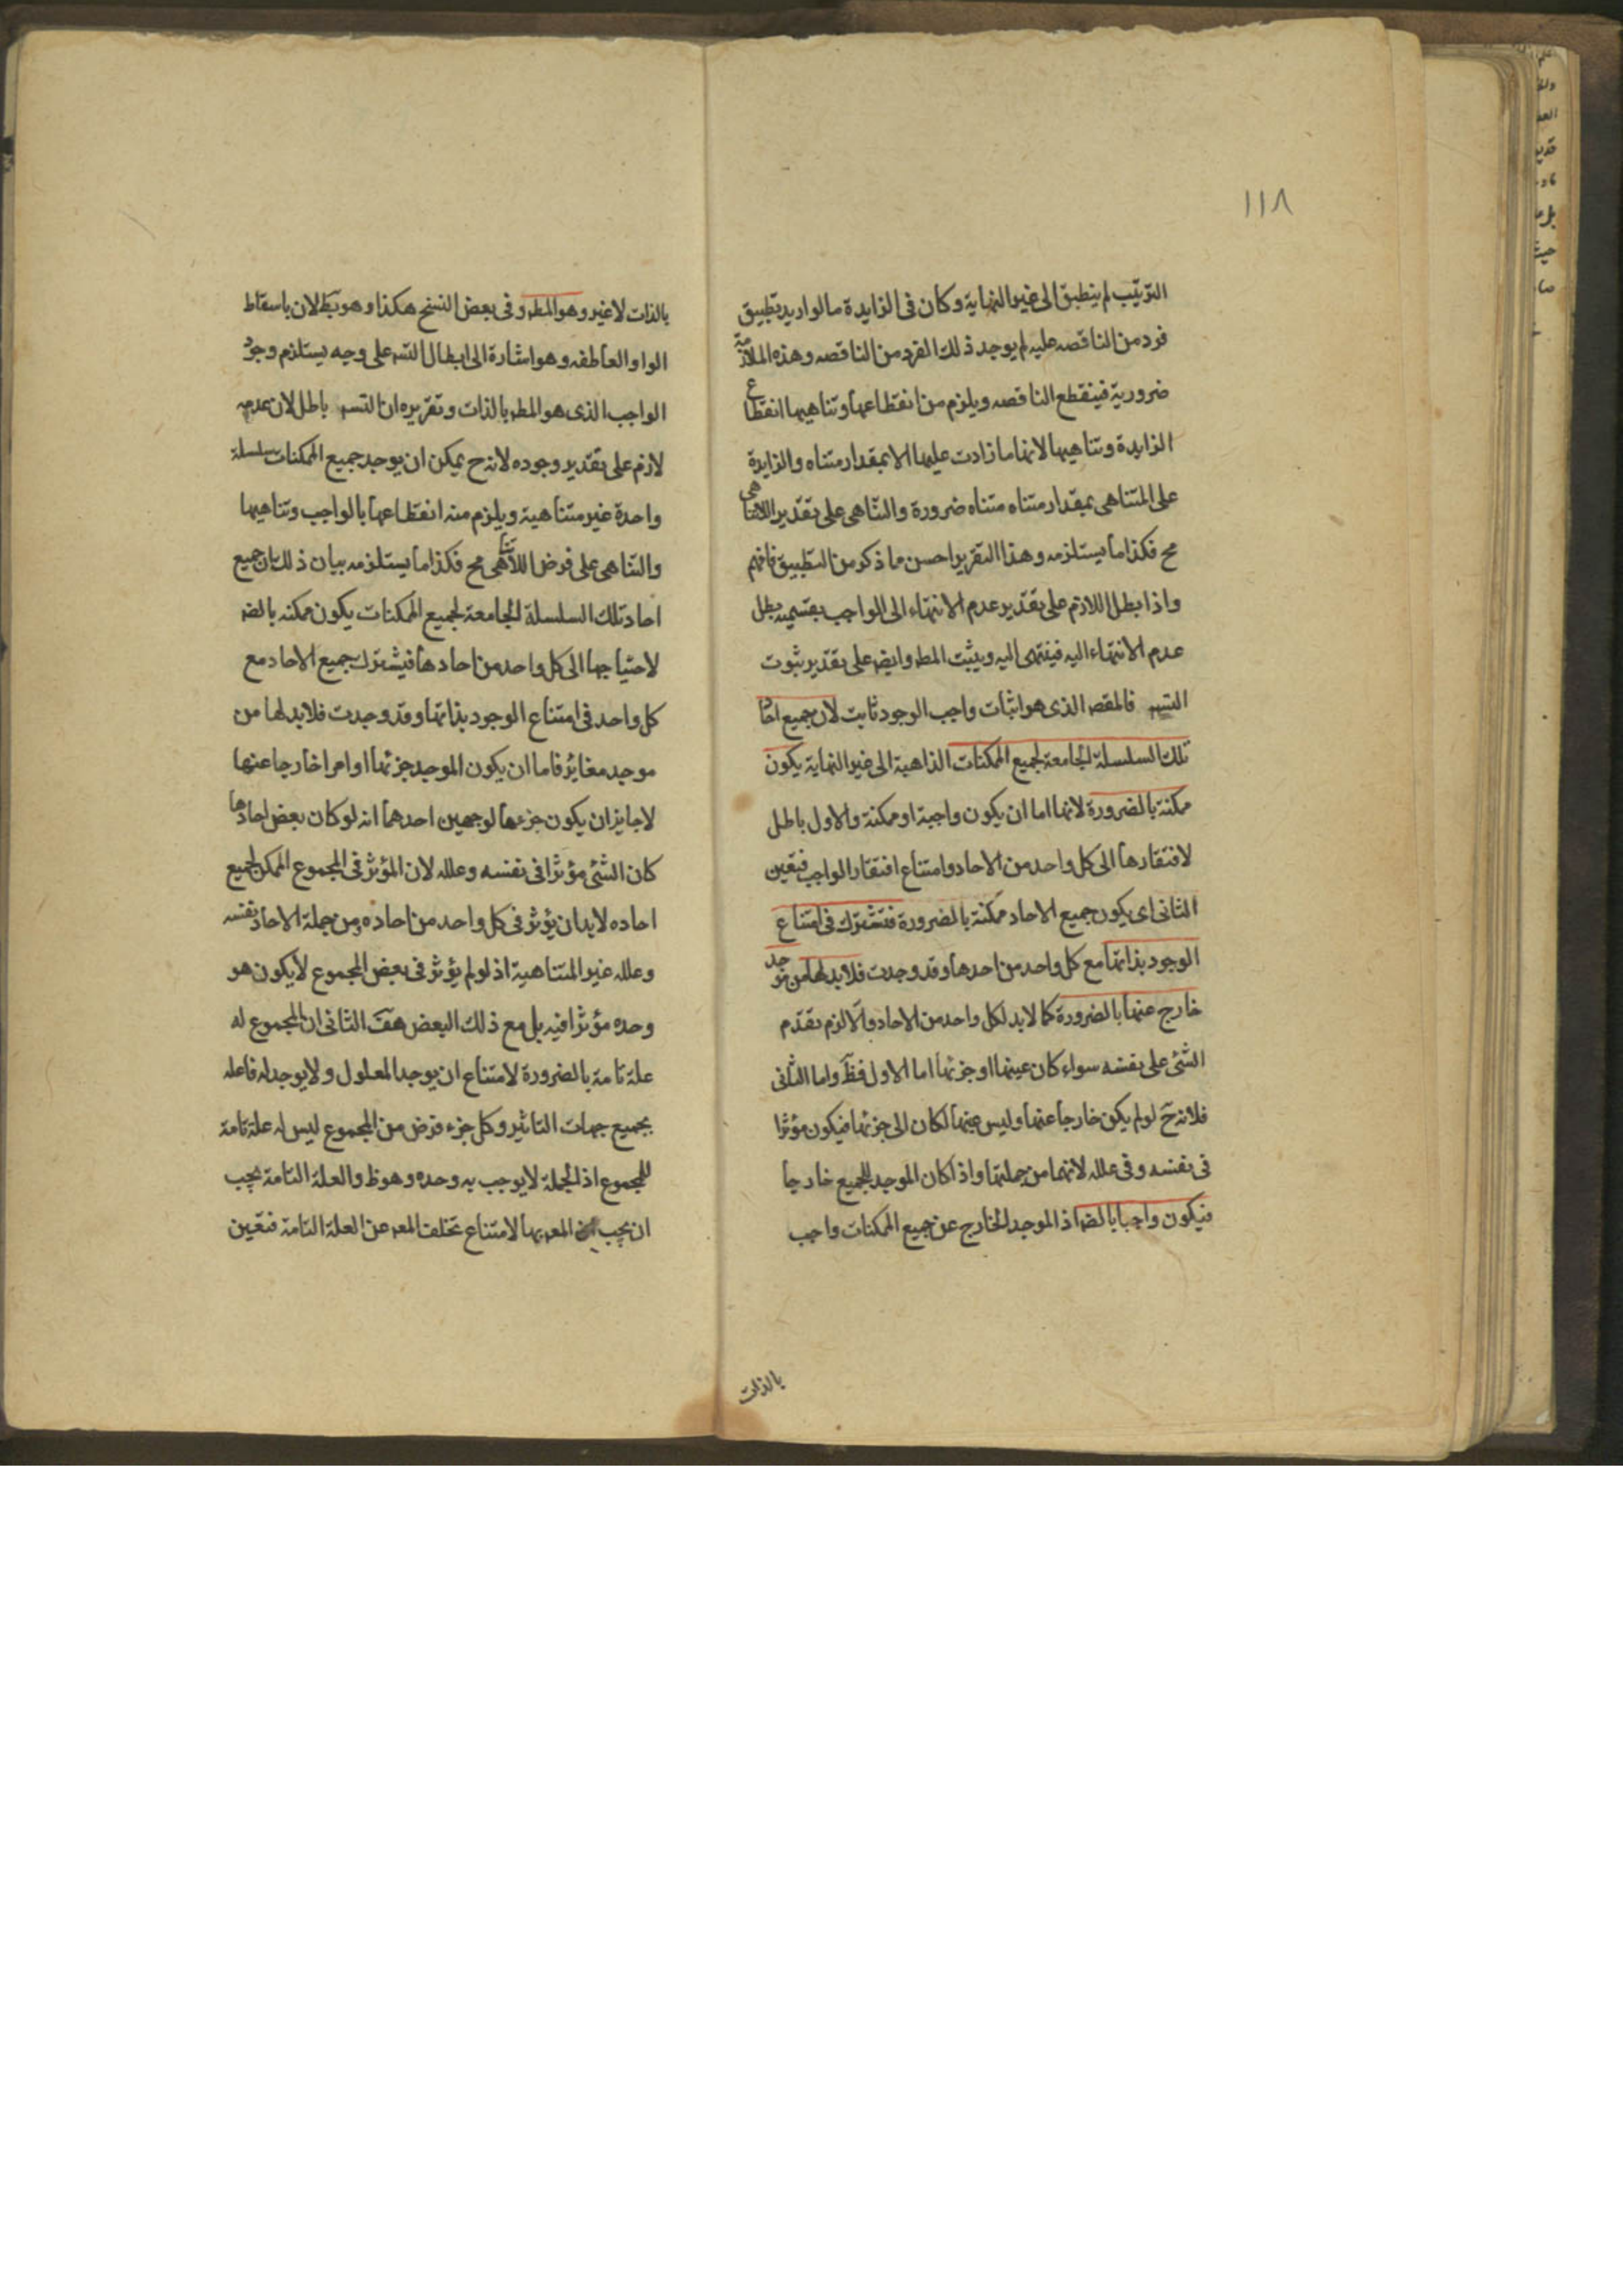 ١١٨
الترتيب لم ينطبق الى غير النهاية وكان فى الزايدة ما لو اريد تطبيق
فرد من الناقصه عليه لم يوجد ذلك الفرد من الناقصه وهذه الملازمة
ضرورية فينقطع الناقصه ويلزم من انقطاعها وتناهيها انقطاع
الزايدة وتناهيها لانها ما زادت عليها الا بمقدار متناه والزايدة
على المتناهى بمقدار متناه متناه ضرورة والتناهى على تقدير اللاتناهى
مح فكذا ما يستلزمه وهذا التقرير احسن ما ذكر من التطبيق فافهم
واذا بطل اللازم على تقدير عدم الانتهاء الى الواجب بقسميه بطل
عدم الانتهاء اليه فينتهى اليه ويثبت المطه وايضه على تقدير ثبوت
التسه فالمقصه الذى هو اثبات واجب الوجود ثابت لان جميع احاد
تلك السلسلة الجامعة لجميع الممكنات الذاهبة الى غير النهاية يكون
ممكنة بالضرورة لانها اما ان يكون واجبة او ممكنة والاول باطل
لافتقارها الى كل واحد من الاحاد وامتناع افتقار الواجب فتعين
الثانى اى يكون جميع الاحاد ممكنة بالضرورة فتشترك فى امتناع
الوجود بذاتها مع كل واحد من احدها وقد وجدت فلابد لها من موجد
خارج عنها بالضرورة كما لابد لكل واحد من الاحاد والا لزم تقدم
الشئ على نفسه سواء كان عينها او جزئها اما الاول فظ واما الثانى
فلانه ح لو لم يكن خارجا عنها وليس عينها لكان الى جزئها فيكون مؤثرا
فى نفسه وفى علله لانها من جملتها واذا كان الموجد للجميع خارجا
فيكون واجبا بالضه اذ الموجد الخارج عن جميع الممكنات واجب
بالذات
بالذات لا غير وهو المطه وفى بعض النسخ هكذا وهو بط لان باسقاط
الواو العاطفه وهو اشارة الى ابطال التسه على وجه يستلزم وجود
الواجب الذى هو المطه بالذات وتقريره ان التسه باطل لان عدمه
لازم على تقدير وجوده لانه ح يمكن ان يوجد جميع الممكنات سلسلة
واحدة غير متناهية ويلزم منه انقطاعها بالواجب وتناهيها
والتناهى على فرض اللاتناهى مح فكذا ما يستلزمه بيان ذلك بان جميع
احاد تلك السلسلة الجامعة لجميع الممكنات يكون ممكنه بالضه
لاحتياجها الى كل واحد من احادها فيشترك جميع الاحاد مع
كل واحد فى امتناع الوجود بذاتها وقد وجدت فلابد لها من
موجد مغاير فاما ان يكون الموجد جزئها او امرا خارجا عنها
لا جايز ان يكون جزءها لوجهين احدهما انه لو كان بعض احادها
كان الشئ مؤثرا فى نفسه وعلله لان المؤثر فى المجموع الممكن لجميع
احاده لابد ان يؤثر فى كل واحد من احاده ومن جملة الاحاد نفسه
وعلله غير المتناهية اذ لو لم يؤثر فى بعض المجموع لا يكون هو
وحده مؤثرا فيه بل مع ذلك البعض هف الثانى ان المجموع له
علة تامة بالضرورة لامتناع ان يوجد المعلول ولا يوجد له فاعله
بجميع جهات التاثير وكل جزء فرض من المجموع ليس له علة تامة
للمجموع اذ الجملة لا يوجب به وحده وهو ظ والعلة التامة يجب
ان يجب المعه بها لامتناع تخلف المعه عن العلة التامة فتعين